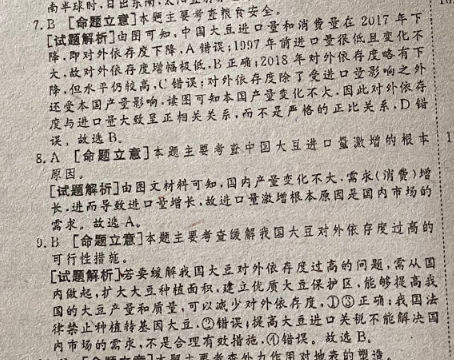 南半球时,日出东南,太
7.B 【命题立意】本题主要考查粮食安全。
【试题解析】由图可知,中国大豆进口量和消费量在 2017 年下
降,即对外依存度下降,A 错误;1997 年前进口量很低且变化不
大,故对外依存度增幅极低,B 正确;2018 年对外依存度略有下
降,但水平仍较高,C 错误;对外依存度除了受进口量影响之外
还受本国产量影响,读图可知本国产量变化不大,因此对外依存
度与进口量大致呈正相关关系,而不是严格的正比关系,D 错
误。故选 B。
8.A 【命题立意】本题主要考查中国大豆进口量激增的根本
原因。
【试题解析】由图文材料可知,国内产量变化不大,需求(消费)增
长,进而导致进口量增长,故进口量激增根本原因是国内市场的
需求。故选 A。
9.B 【命题立意】本题主要考查缓解我国大豆对外依存度过高的
可行性措施。
【试题解析】若要缓解我国大豆对外依存度过高的问题,需从国
内做起,扩大大豆种植面积,建立优质大豆保护区,能够提高我
国的大豆产量和质量,可以减少对外依存度,①③正确;我国法
律禁止种植转基因大豆,②错误;提高大豆进口关税不能解决国
内市场的需求,不是合理有效措施,④错误。故选 B。
【命题立意】本题主要考查外力作用对地表的塑造。